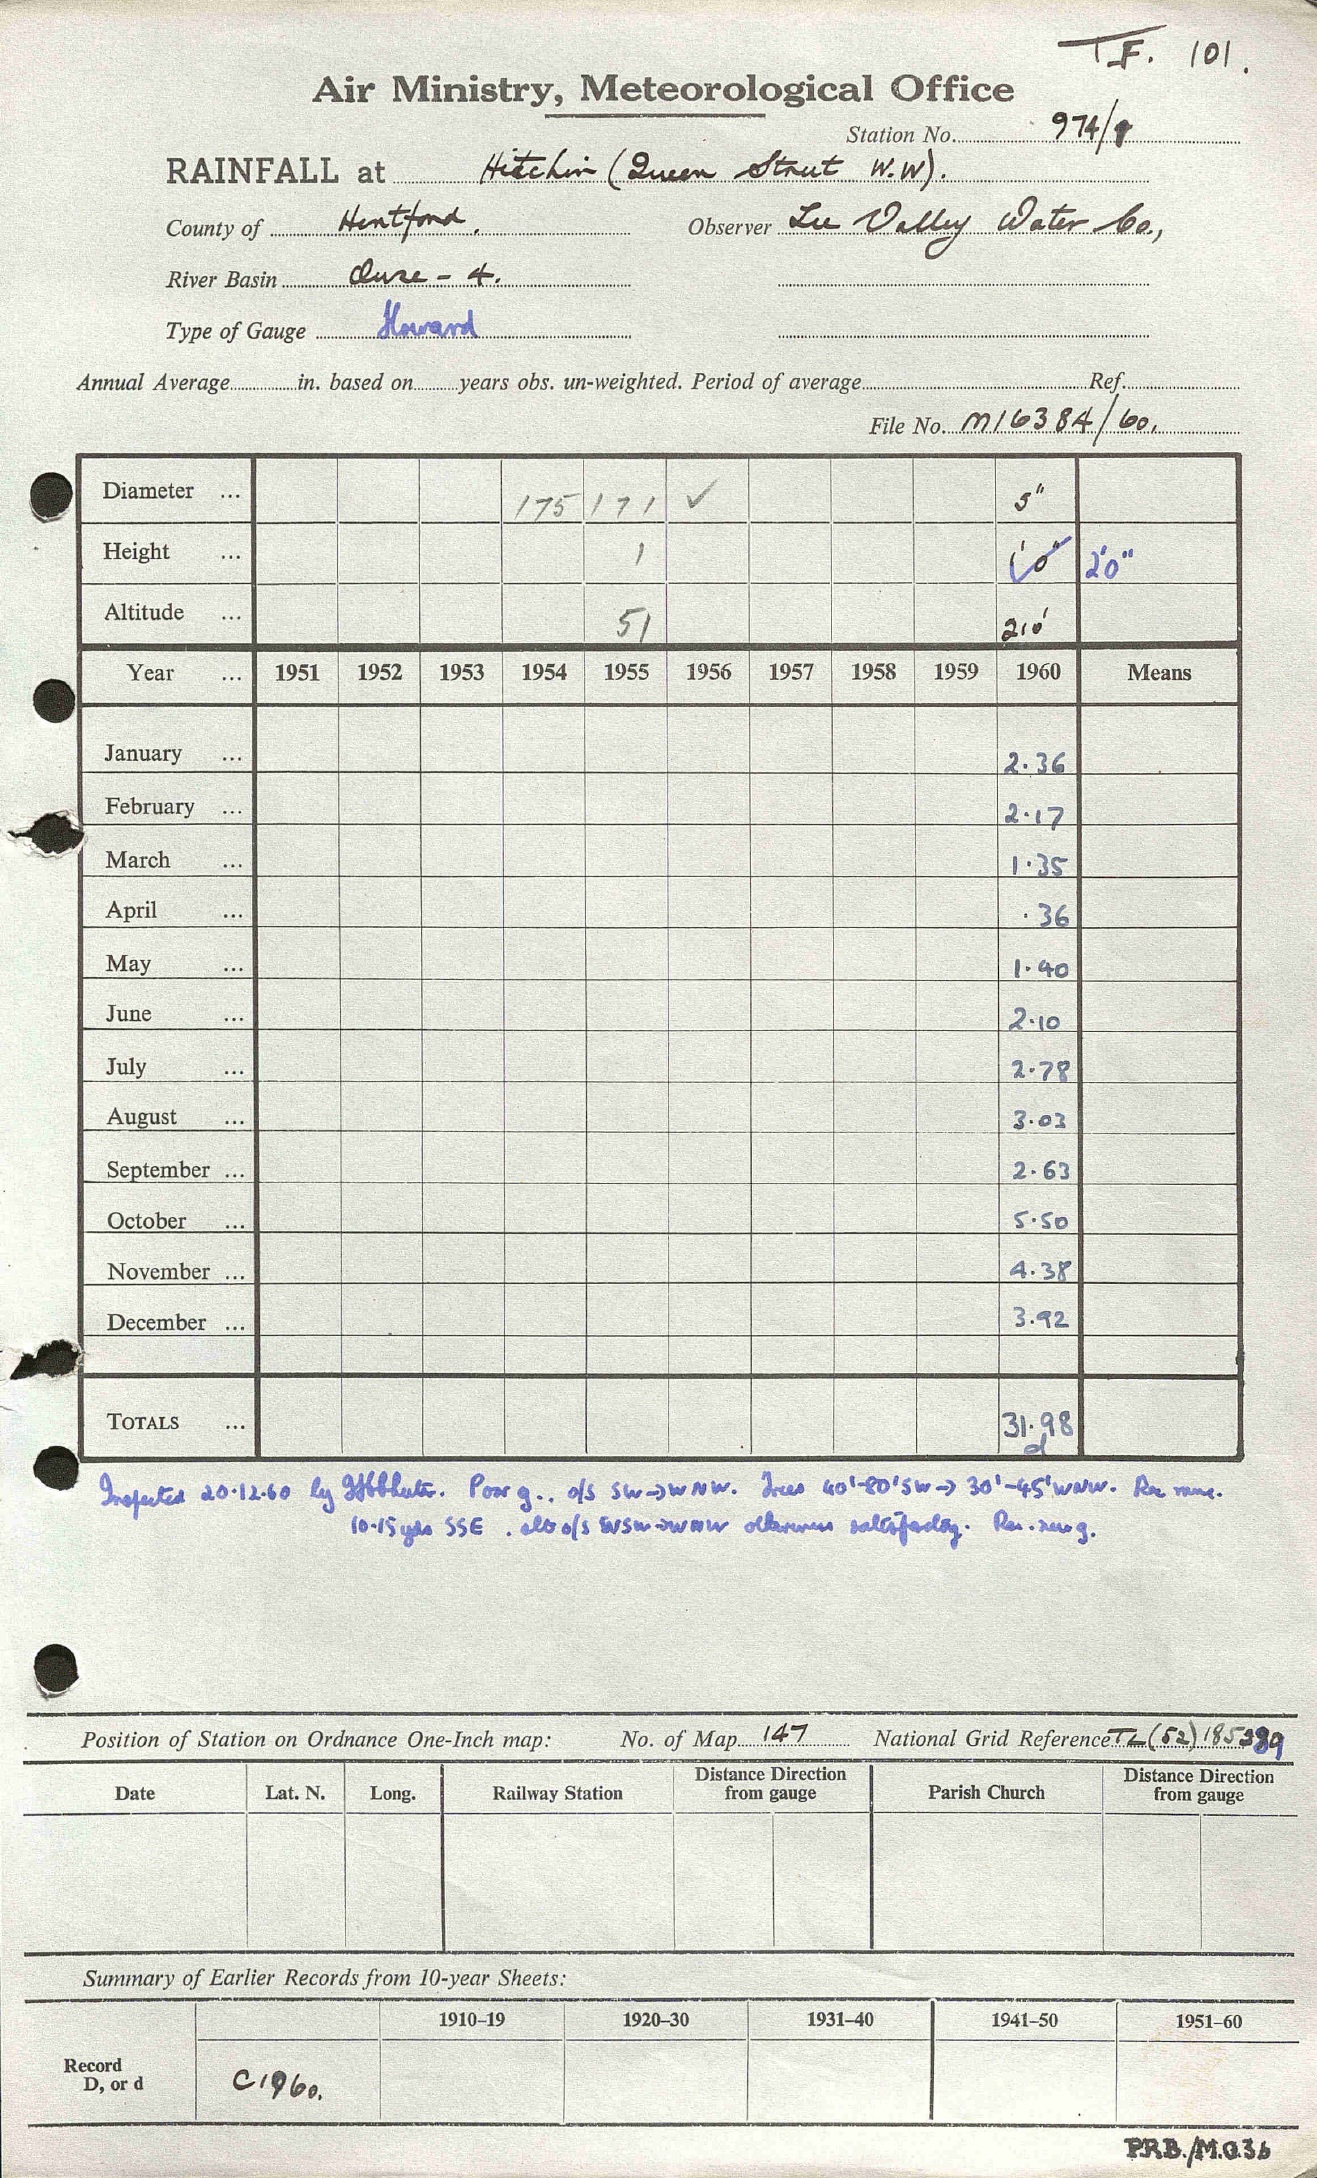 T.F. 101.
Air Ministry, Meteorological Office
Station No. 974/9
RAINFALL at Hitchin (Queen Street W.W).
County of Hertford. Observer Lee Valley Water Co.,
River Basin Ouse - 4.
Type of Gauge Howard
Annual Average in. based on years obs. un-weighted. Period of average Ref.
File No. M16384/60.
Diameter ... 175 171 ✓ 5"
Height ... 1 1'0" 2'0"
Altitude ... 51 210'
Year ... 1951 1952 1953 1954 1955 1956 1957 1958 1959 1960 Means
January ... 2.36
February ... 2.17
March ... 1.35
April ... .36
May ... 1.40
June ... 2.10
July ... 2.78
August ... 3.03
September ... 2.63
October ... 5.50
November ... 4.38
December ... 3.92
TOTALS ... 31.98
d
Inspected 20.12.60 by Poor g., o/s SW→WNW. Trees 40'-80' SW→ 30'-45' WNW. Rec.
10-15 yds SSE. also o/s WSW→WNW otherwise satisfactory. g.
Position of Station on Ordnance One-Inch map: No. of Map 147 National Grid Reference TL (52) 185289
Date Lat. N. Long. Railway Station Distance Direction from gauge Parish Church Distance Direction from gauge
Summary of Earlier Records from 10-year Sheets:
1910–19 1920–30 1931–40 1941–50 1951–60
Record D, or d C1960.
P.R.B./M.O.36